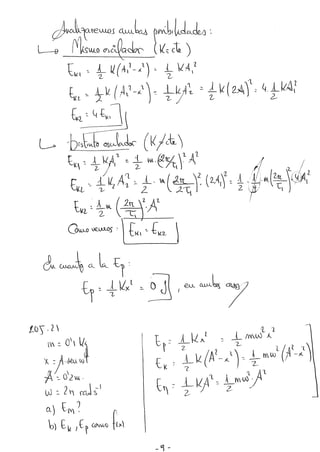 Analizaremos ambas posibilidades:
→ Mismo oscilador (K = cte)
E_{K1} = 1/2 K (A_1² - x²) = 1/2 K A_1²
E_{K2} = 1/2 K (A_2² - x²) = 1/2 K A_2² = 1/2 K (2A)² = 4 · 1/2 K A_1²
E_{K2} = 4 E_{K1}
→ Distinto oscilador (K ≠ cte)
E_{K1} = 1/2 K A² = 1/2 m · (2π/T_1)² · A²
E_{K2} = 1/2 K_2 A_2² = 1/2 · m (2π/2T_1)² · (2A)² = 1/2 · 1/4 · m (2π/T_1)² · 4A²
E_{K2} = 1/2 m (2π/T_1)² · A²
Como vemos: E_{K1} = E_{K2}
En cuanto a la Ep:
Ep = 1/2 K x² = 0 J, en ambos casos
205.21
m = 0'1 Kg
x = A · sen ωt
A = 0'2 m
ω = 2π rad s⁻¹
a) Em?
b) E_K, Ep como f(x)
Ep = 1/2 K x² = 1/2 m ω² x²
E_K = 1/2 K (A² - x²) = 1/2 m ω² (A² - x²)
E_m = 1/2 K A² = 1/2 m ω² · A²
- 9 -